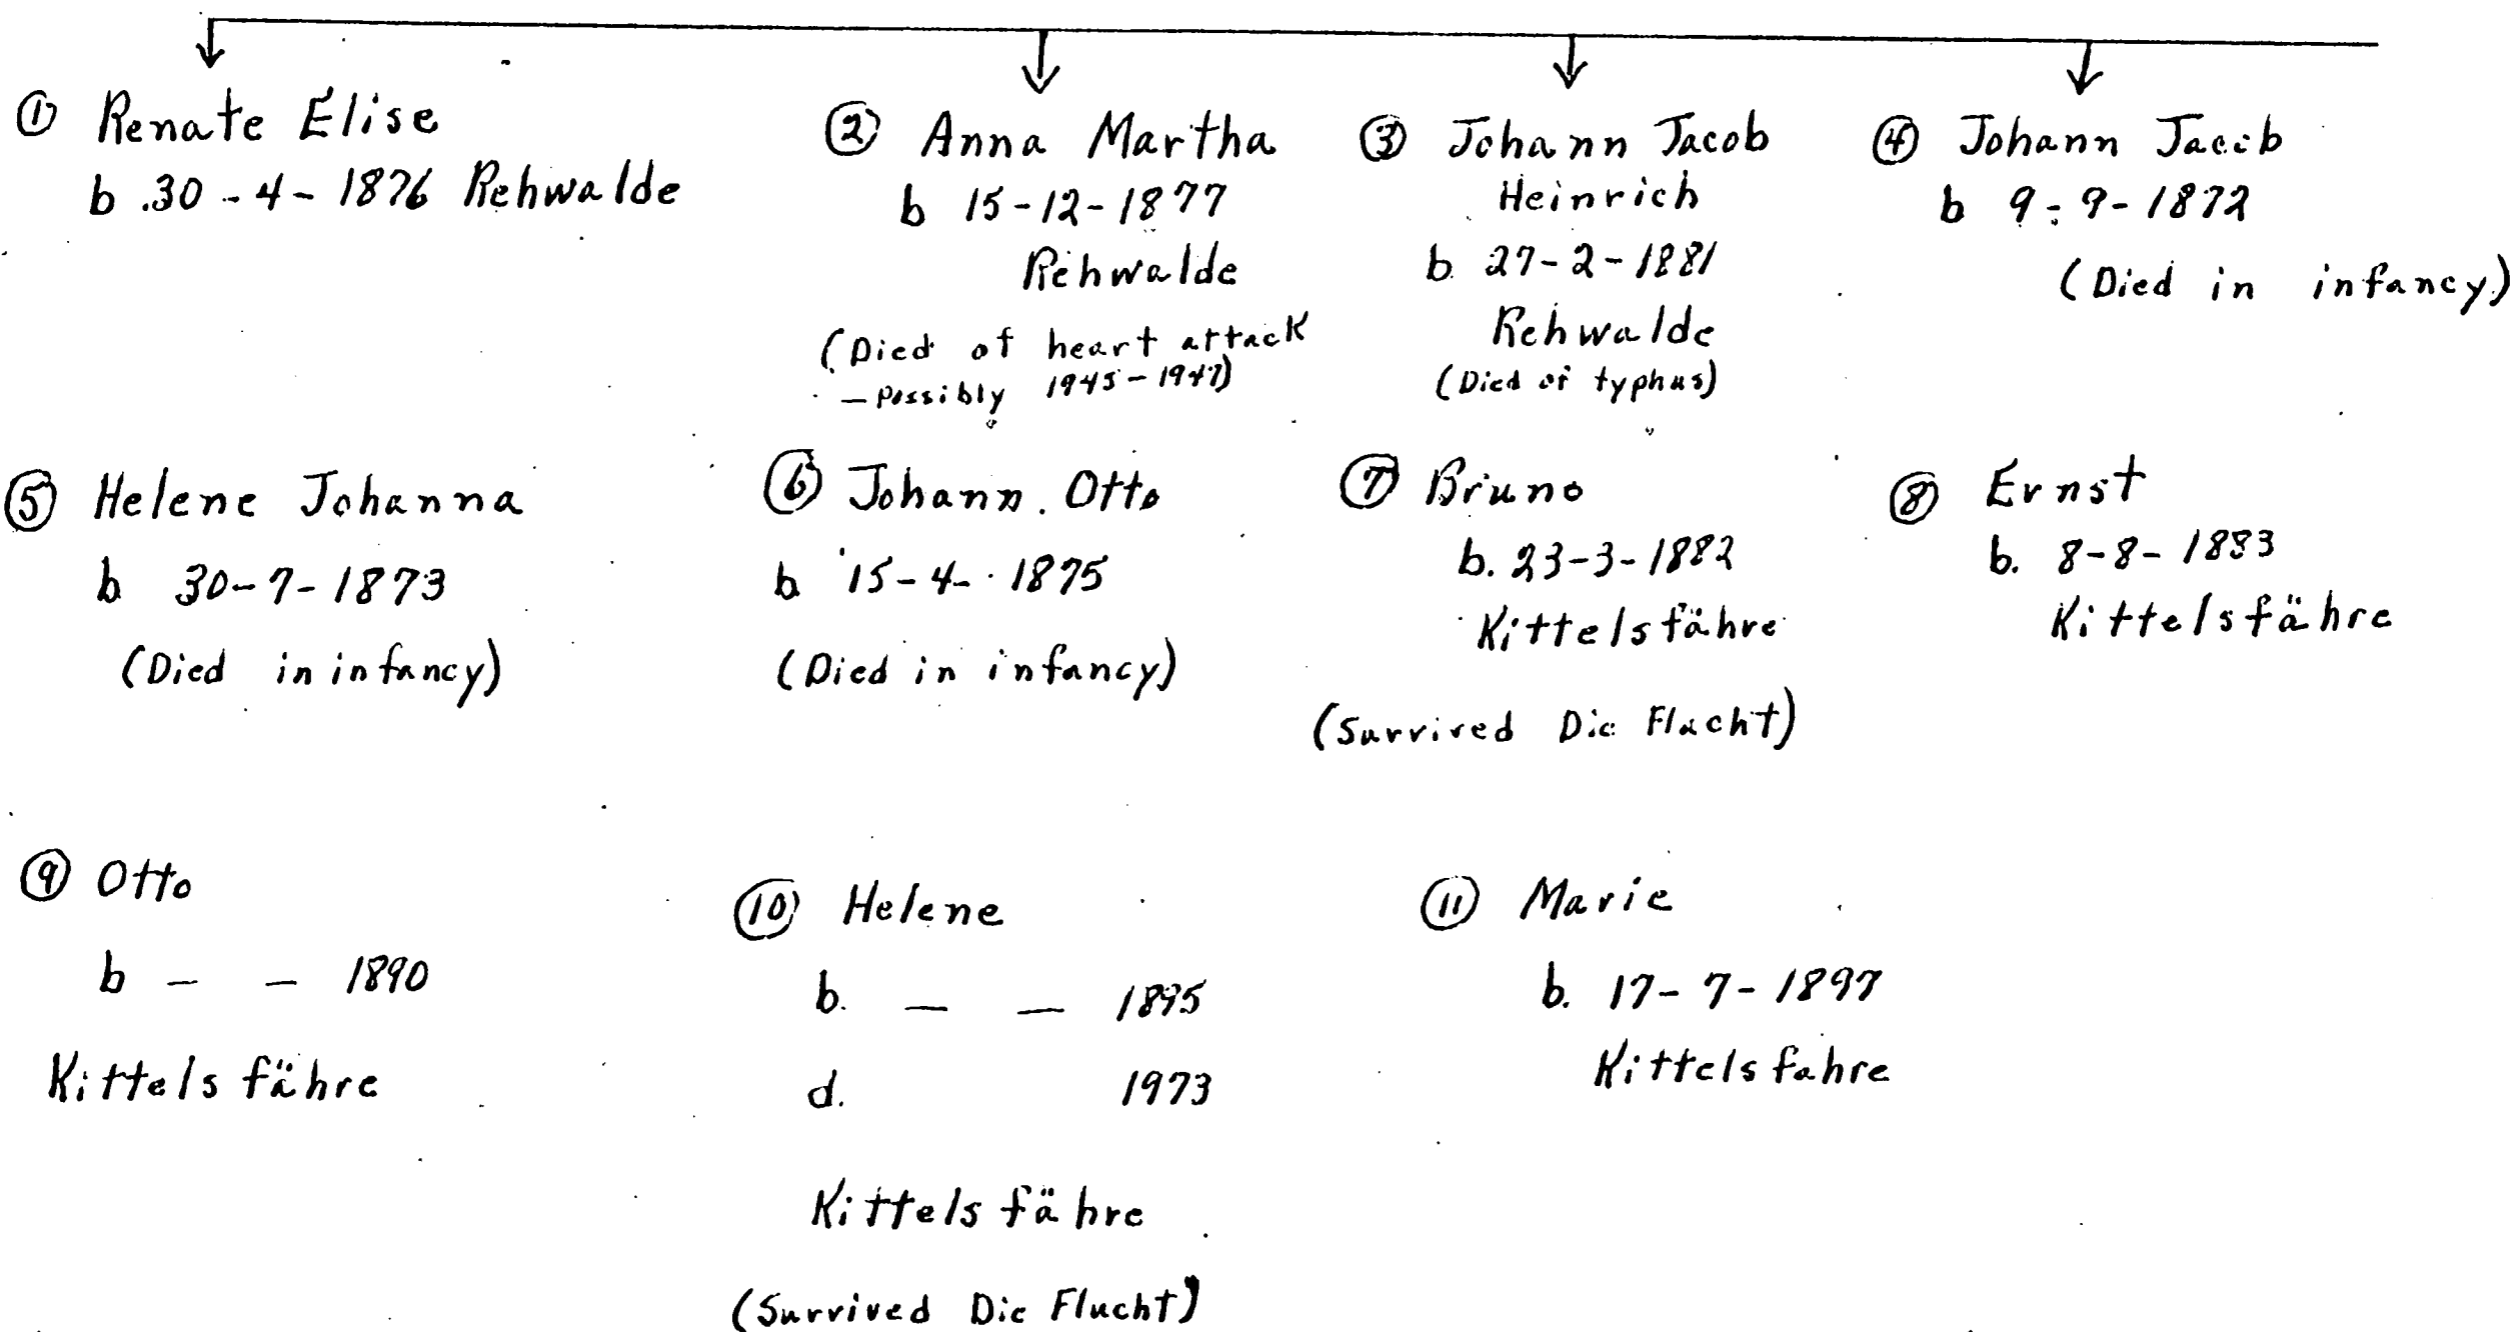 ① Renate Elise
b. 30-4-1876 Rehwalde
② Anna Martha
b 15-12-1877
Rehwalde
(Died of heart attack
- possibly 1945-1947)
③ Johann Jacob
Heinrich
b. 27-2-1881
Rehwalde
(Died of typhus)
④ Johann Jacob
b 9-9-1872
(Died in infancy)
⑤ Helene Johanna
b 30-7-1873
(Died in infancy)
⑥ Johann Otto
b 15-4-1875
(Died in infancy)
⑦ Bruno
b. 23-3-1882
Kittelsfähre
(Survived Die Flucht)
⑧ Ernst
b. 8-8-1883
Kittelsfähre
⑨ Otto
b — — 1890
Kittelsfähre
⑩ Helene
b. — — 1895
d. 1973
Kittelsfähre
(Survived Die Flucht)
⑪ Marie
b. 17-7-1897
Kittelsfahre